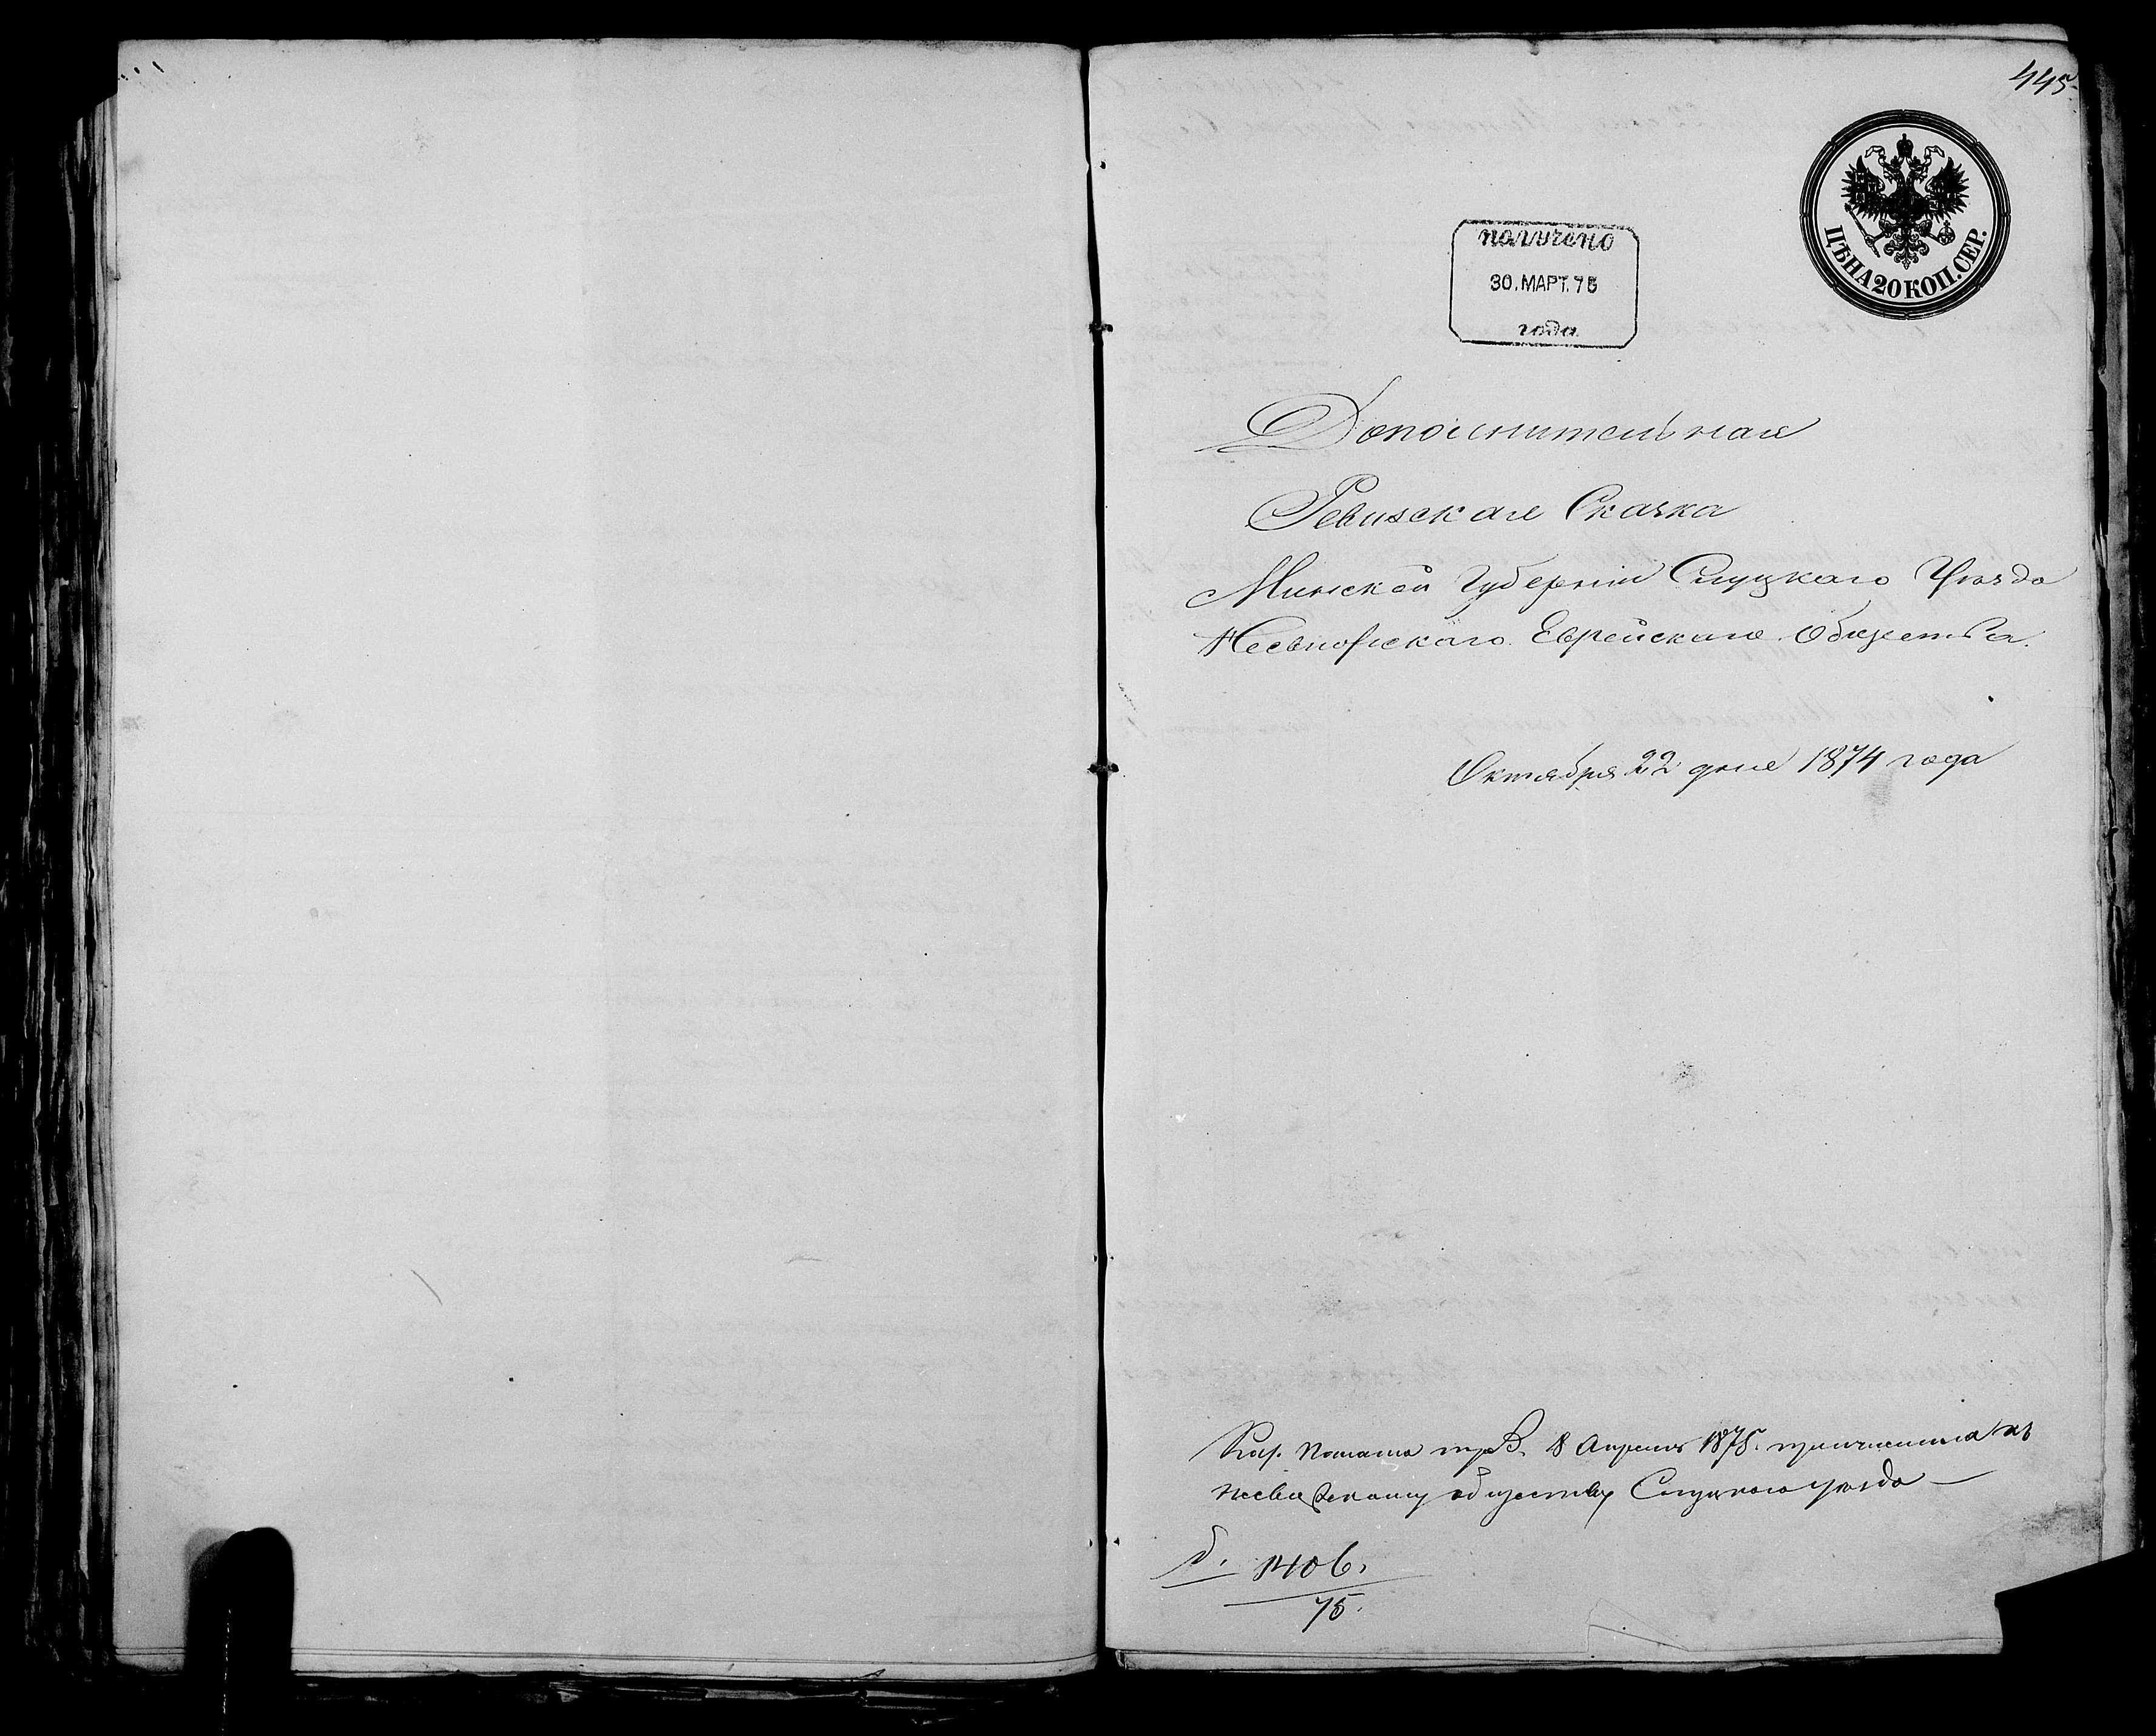 445
ЦѢНА 20 КОП. СЕР.
получено
30. МАРТ. 75
года
Дополнительная
Ревизская Сказка
Минской Губерніи Слуцкаго Уѣзда
Несвижскаго Еврейскаго Общества.
Октября 22 дня 1874 года
Каз. Палата 8 Апрѣля 1875. причислила къ
Несвижскому обществу Слуцкаго уѣзда
1406.
75.